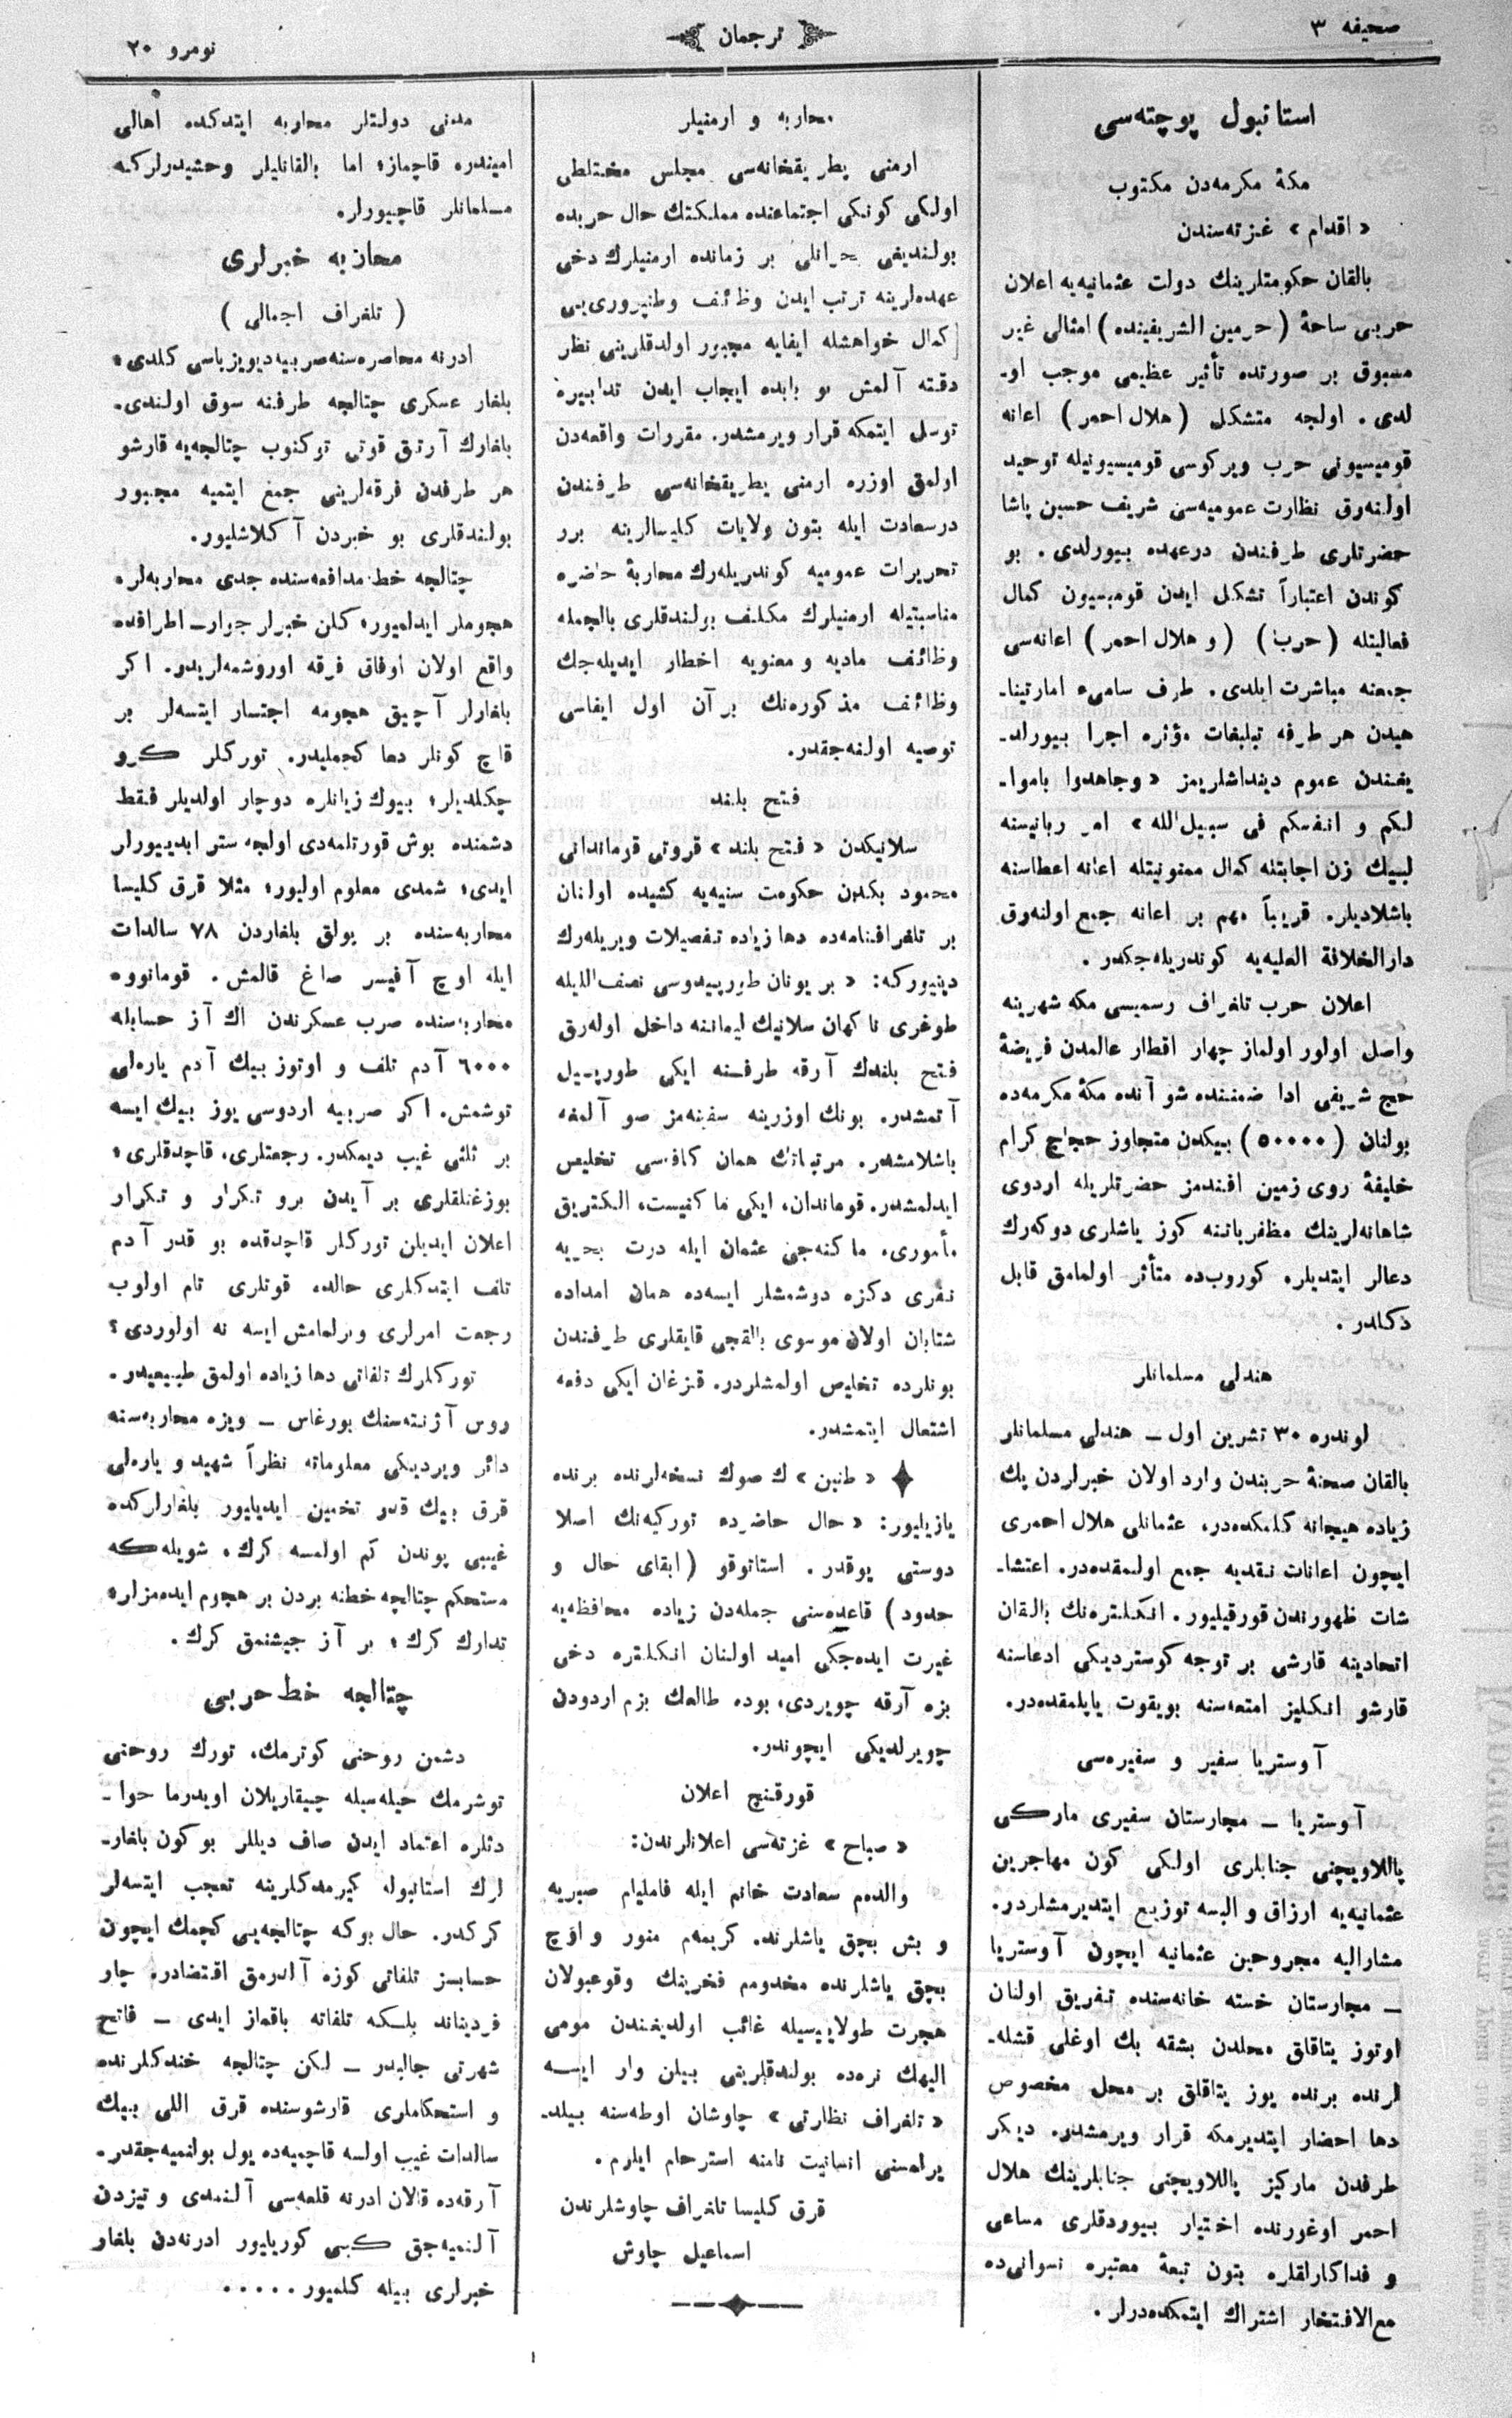 صحیفه ٣
ترجمان
نومرو ٢٠
استانبول پوچته‌سی
مکۀ مکرمه‌دن مکتوب
« اقدام » غزته‌سندن
بالقان حکومتلرینك دولت عثمانیه‌یه اعلان
حربی ساحۀ (حرمین الشریفینده) امثالی غیر
مسبوق بر صورتده تأثیر عظیمی موجب او-
لدی. اولجه متشکل (هلال احمر) اعانه
قومیسیونی حرب ویرکوسی قومیسیونیله توحید
اولنه‌رق نظارت عمومیه‌سی شریف حسین پاشا
حضرتلری طرفندن درعهده بیورلدی. بو
کوندن اعتباراً تشکل ایدن قومیسیون کمال
فعالیتله (حرب) (و هلال احمر) اعانه‌سی
جمعنه مباشرت ایلدی. طرف سامیء امارتپنا-
هیدن هر طرفه تبلیغات مؤثره اجرا بیورلد-
یغندن عموم دینداشلریمز « وجاهدوا باموا-
لکم و انفسکم فی سبیل الله » امر ربانیسنه
لبیك زن اجابتله کمال ممنونیتله اعانه اعطاسنه
باشلادیلر. قریباً مهم بر اعانه جمع اولنه‌رق
دارالخلافة العلیه‌یه کوندریله‌جکدر.
اعلان حرب تلغراف رسمیسی مکه شهرینه
واصل اولور اولماز چهار اقطار عالمدن فریضۀ
حج شریفی ادا ضمننده شو آنده مکۀ مکرمه‌ده
بولنان (٥٠٠٠٠) بیکدن متجاوز حجاج کرام
خلیفۀ روی زمین افندمز حضرتلریله اردوی
شاهانه‌لرینك مظفریاتنه کوز یاشلری دوکه‌رك
دعالر ایتدیلر. کوروب‌ده متأثر اولمامق قابل
دکلدر.
هندلی مسلمانلر
لوندره ٣٠ تشرین اول – هندلی مسلمانلر
بالقان صحنۀ حربندن وارد اولان خبرلردن پك
زیاده هیجانه کلمکده‌در. عثمانلی هلال احمری
ایچون اعانات نقدیه جمع اولنمقده‌در. اغتشا-
شات ظهورندن قورقیلیور. انکلتره‌نك بالقان
اتحادینه قارشی بر توجه کوستردیکی ادعاسنه
قارشو انکلیز امتعه‌سنه بویقوت یاپلمقده‌در.
آوستریا سفیر و سفیره‌سی
آوستریا – مجارستان سفیری مارکی
پاللاویچنی جنابلری اولکی کون مهاجرین
عثمانیه‌یه ارزاق و البسه توزیع ایتدیرمشلردر.
مشارالیه مجروحین عثمانیه ایچون آوستریا
– مجارستان خسته خانه‌سنده تفریق اولنان
اوتوز یتاقلق محلدن بشقه بك اوغلی قشله-
لرنده برنده یوز یتاقلق بر محل مخصوص
دها احضار ایتدیرمکه قرار ویرمشدر. دیکر
طرفدن مارکیز پاللاویچنی جنابلرینك هلال
احمر اوغورنده اختیار بیوردقلری مساعی
و فداکارلقلره بتون تبعۀ معتبره نسوانی‌ده
مع‌الافتخار اشتراك ایتمکده‌درلر.
محاربه و ارمنیلر
ارمنی بطریقخانه‌سی مجلس مختلطی
اولکی کونکی اجتماعنده مملکتك حال حربده
بولندیغی بر زمانده ارمنیلرك دخی
عهده‌لرینه ترتب ایدن وظائف وطنپروری‌یی
کمال خواهشله ایفایه مجبور اولدقلرینی نظر
دقته آلمش بو بابده ایجاب ایدن تدابیره
توسل ایتمکه قرار ویرمشدر. مقررات واقعه‌دن
اولمق اوزره ارمنی بطریقخانه‌سی طرفندن
درسعادت ایله بتون ولایات کلیسالرینه برر
تحریرات عمومیه کوندریله‌رك محاربۀ حاضره
مناسبتیله ارمنیلرك مکلف بولندقلری بالجمله
وظائف مادیه و معنویه اخطار ایدیله‌جك
وظائف مذکوره‌نك بر آن اول ایفاسی
توصیه اولنه‌جقدر.
فتح بلند
سلانیکدن « فتح بلند » قروتی قرماندانی
محمود بکدن حکومت سنیه‌یه کشیده اولنان
بر تلغرافنامه‌ده دها زیاده تفصیلات ویریله‌رك
دینیورکه: « بر یونان طورپیدوسی نصف اللیله
طوغری ناکهان سلانیك لیماننه داخل اوله‌رق
فتح بلندك آرقه طرفنه ایکی طورپیل
آتمشدر. بونك اوزرینه سفینه‌مز صو آلمغه
باشلامشدر. مرتباتك همان کافه‌سی تخلیص
ایدلمشدر. قوماندان، ایکی ماکنیست، الکتریق
مأموری، ماکنه‌جی عثمان ایله درت بحریه
نفری دکزه دوشمشلر ایسه‌ده همان امداده
شتابان اولان موسوی بالقجی قایقلری طرفندن
بونلرده تخلیص اولمشلردر. قزغان ایکی دفعه
اشتعال ایتمشدر.
« طنین » ك صوك نسخه‌لرنده برنده
یازیلیور: « حال حاضرده تورکیه‌نك اصلا
دوستی یوقدر. استاتوقو (ابقای حال و
حدود) قاعده‌سنی جمله‌دن زیاده محافظه‌یه
غیرت ایده‌جکی امید اولنان انکلتره دخی
بزه آرقه چویردی، بوده طالعك بزم اردودن
چویرلدیکی ایچوندر.
قورقنچ اعلان
« صباح » غزته‌سی اعلانلرندن:
والده‌م سعادت خانم ایله فامیلیام صبریه
و بش بچق یاشلرنده کریمه‌م منور و اوچ
بچق یاشلرنده مخدومم فخرینك وقوعبولان
هجرت طولاییسیله غائب اولدیغندن مومی
الیهك نره‌ده بولندقلرینی بیلن وار ایسه
« تلغراف نظارتی » چاوشان اوطه‌سنه بیلد-
یرلمسنی انسانیت نامنه استرحام ایلرم.
قرق کلیسا تلغراف چاوشلرندن
اسماعیل چاوش
مدنی دولتلر محاربه ایتدکده اهالی
امیندره قاچماز؛ اما بالقانلیلر وحشیدرلرکه
مسلمانلر قاچیورلر.
محاربه خبرلری
( تلغراف اجمالی )
ادرنه محاصره‌سنه صربیه دیویزیاسی کلدی؛
بلغار عسکری چتالجه طرفنه سوق اولندی.
بلغارك آرتق قوتی توکنوب چتالجه‌یه قارشو
هر طرفدن فرقه‌لرینی جمع ایتمیه مجبور
بولندقلری بو خبردن آکلاشلیور.
چتالجه خط مدافعه‌سنده جدی محاربه‌لر،
هجوملر ایدلمیور؛ کلن خبرلر جوار – اطرافده
واقع اولان اوفاق فرقه اوروشمه‌لریدر. اکر
بلغارلر آچیق هجومه اجتسار ایتسه‌لر بر
قاچ کونلر دها کچملیدر. تورکلر کرو
چکلدیلر؛ بیوك زیانلره دوچار اولدیلر فقط
دشمنده بوش قورتلمه‌دی اولجه ستر ایدییورلر
ایدی؛ شمدی معلوم اولیور؛ مثلا قرق کلیسا
محاربه‌سنده بر پولق بلغاردن ٧٨ سالدات
ایله اوچ آفیسر صاغ قالمش. قومانووه
محاربه‌سنده صرب عسکرندن اك آز حسابله
٦٠٠٠ آدم تلف و اوتوز بیك آدم یاره‌لی
توشمش. اکر صربیه اردوسی یوز بیك ایسه
بر ثلثی غیب دیمکدر. رجعتلری، قاچدقلری؛
بوزغنلقلری بر آیدن برو تکرار و تکرار
اعلان ایدیلن تورکلر قاچدقده بو قدر آدم
تلف ایتدکلری حالده، قوتلری تام اولوب
رجعت امرلری ویرلمامش ایسه نه اولوردی؟
تورکلرك تلفاتی دها زیاده اولمق طبیعیدر.
روس آژنته‌سنك بورغاس – ویزه محاربه‌سنه
دائر ویردیکی معلوماته نظراً شهید و یاره‌لی
قرق بیك قدر تخمین ایدیلیور بلغارلرکده
غیبی پوندن کم اولمسه کرك. شویله‌که
مستحکم چتالجه خطنه بردن بر هجوم ایده‌مزلر؛
تدارك کرك؛ بر آز جیشنمق کرك.
چتالجه خط حربی
دشمن روحنی کوترمك، تورك روحنی
توشرمك حیله‌سیله چیقاریلان اویدرما حوا-
دثلره اعتماد ایدن صاف دیللر بو کون بلغار-
لرك استانبوله کیرمدکلرینه تعجب ایتسه‌لر
کرکدر. حال بوکه چتالجه‌یی کچمك ایچون
حسابسز تلفاتی کوزه آلدرمق اقتضادر. چار
فردیناند بلکه تلفاته باقماز ایدی – فاتح
شهرتی جالبدر – لکن چتالجه خندکلرنده
و استحکاملری قارشوسنده قرق اللی بیك
سالدات غیب اولسه قاچمیه‌ده یول بولنمیه‌جقدر.
آرقه‌ده قالان ادرنه قلعه‌سی آلنمدی و تیزدن
آلنمیه‌جق کبی کوریلیور ادرنه‌دن بلغار
خبرلری بیله کلمیور . . . . .